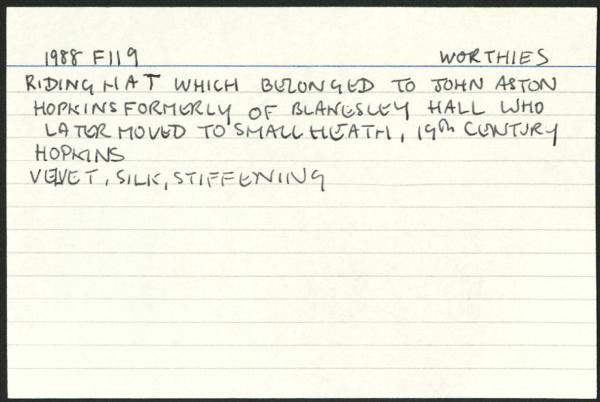 1988 F119 WORTHIES
RIDING HAT WHICH BELONGED TO JOHN ASTON
HOPKINS FORMERLY OF BLAKESLEY HALL WHO
LATER MOVED TO SMALL HEATH, 19th CENTURY
HOPKINS
VELVET, SILK, STIFFENING